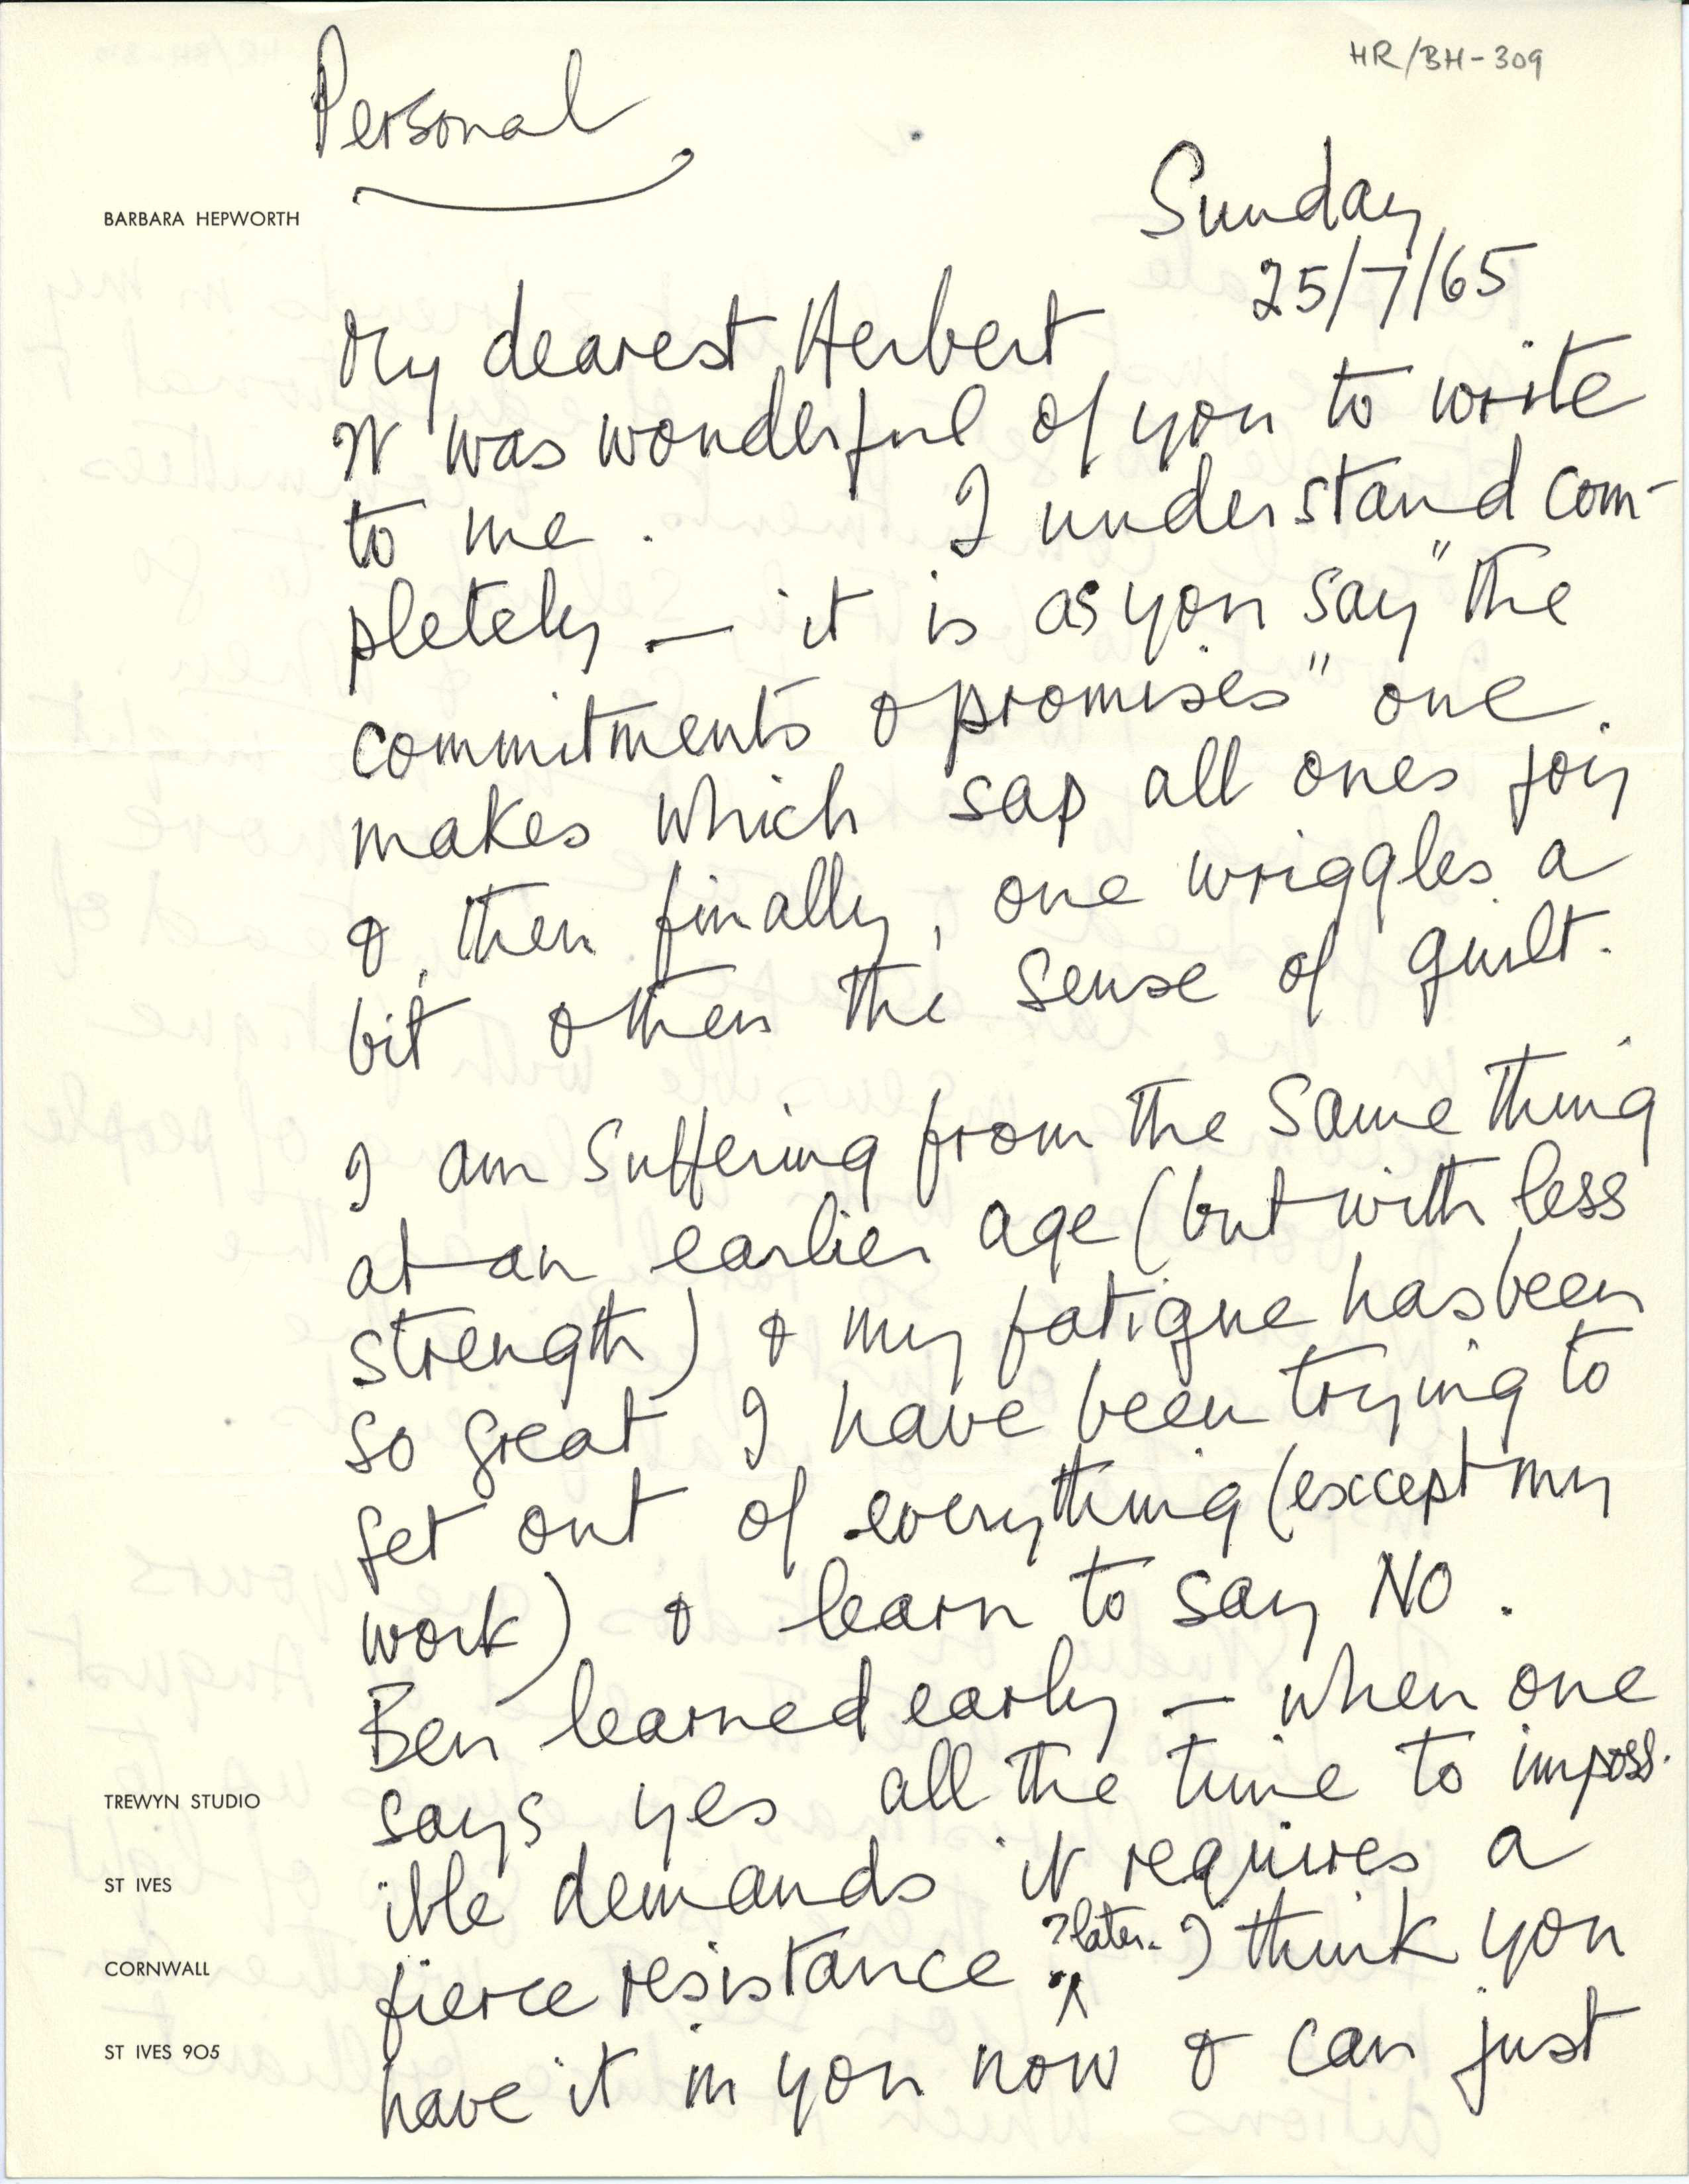 HR/BH-309
Personal
BARBARA HEPWORTH
Sunday
25/7/65
My dearest Herbert
It was wonderful of you to write
to me. I understand com-
pletely — it is as you say "the
commitments & promises" one
makes which sap all ones joy
& then finally, one wriggles a
bit & then the sense of guilt.
I am suffering from the same thing
at an earlier age (but with less
strength) & my fatigue has been
so great I have been trying to
get out of everything (except my
work) & learn to say NO.
Ben learned early — when one
says yes all the time to imposs.
ible demands it requires a
fierce resistance ? later. I think you
have it in you now & can just
TREWYN STUDIO
ST IVES
CORNWALL
ST IVES 905